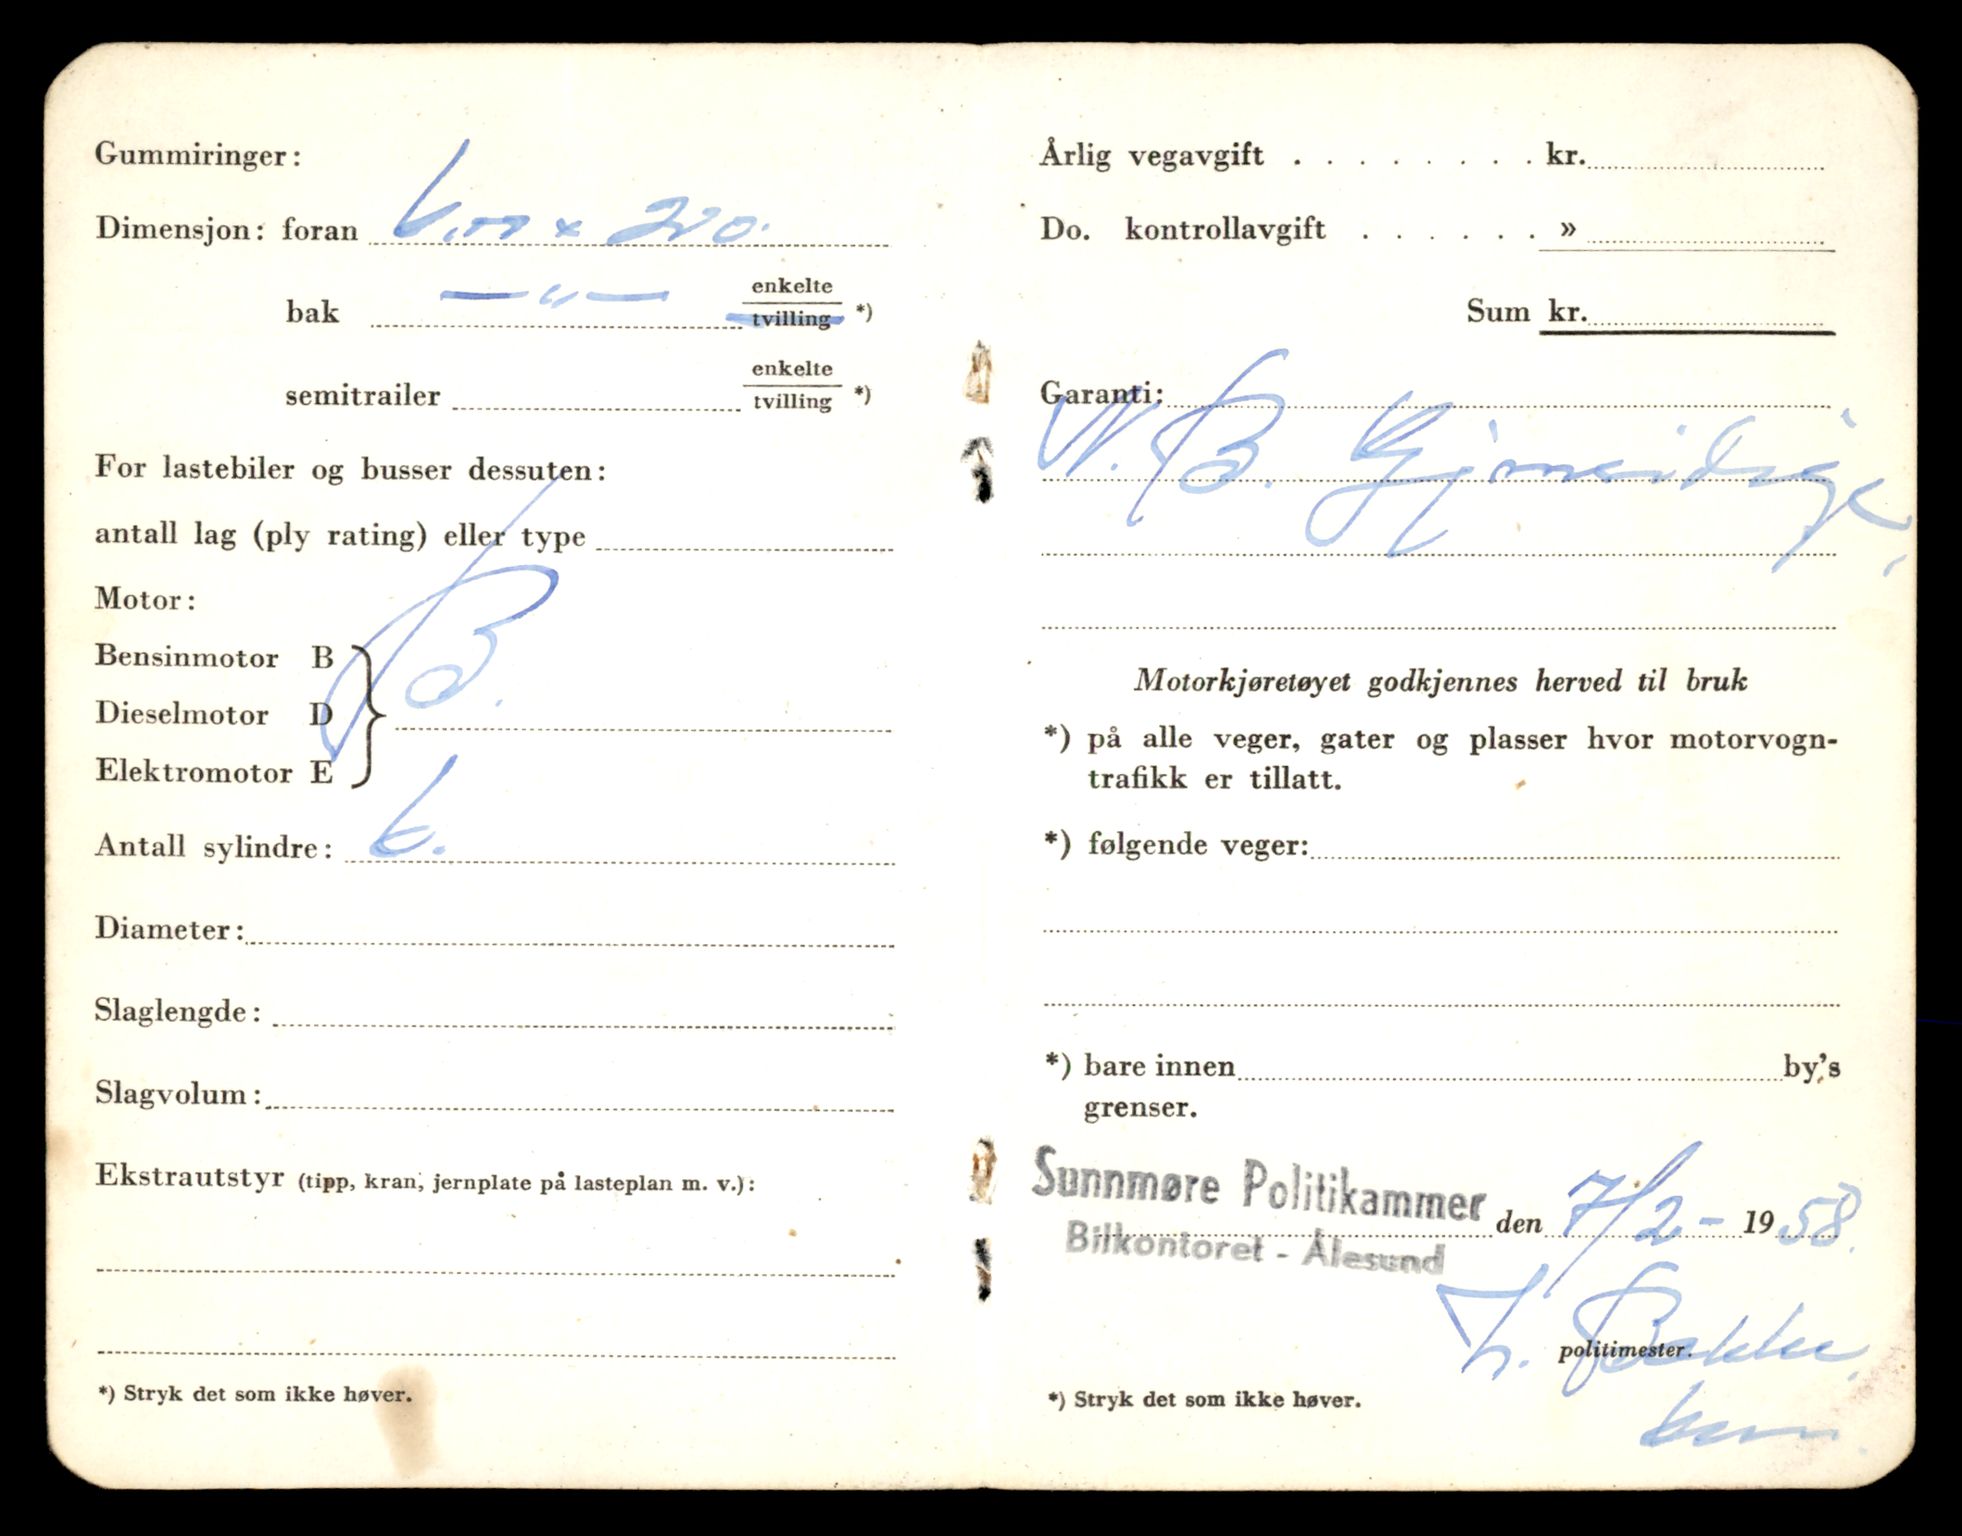 Gummiringer:
Dimensjon: foran
bak — „ — enkelte
tvilling *)
semitrailer enkelte
tvilling *)
For lastebiler og busser dessuten:
antall lag (ply rating) eller type
Motor:
Bensinmotor B
Dieselmotor D
Elektromotor E
B.
Antall sylindre: 6.
Diameter:
Slaglengde:
Slagvolum:
Ekstrautstyr (tipp, kran, jernplate på lasteplan m. v.):
*) Stryk det som ikke høver.
Årlig vegavgift . . . . . . . . kr.
Do. kontrollavgift . . . . . . »
Sum kr.
Garanti:
N. B. Gjensidige
Motorkjøretøyet godkjennes herved til bruk
*) på alle veger, gater og plasser hvor motorvogn-
trafikk er tillatt.
*) følgende veger:
*) bare innen by's
grenser.
Sunnmøre Politikammer den 7/2 - 1958.
Bilkontoret - Ålesund
politimester.
*) Stryk det som ikke høver.